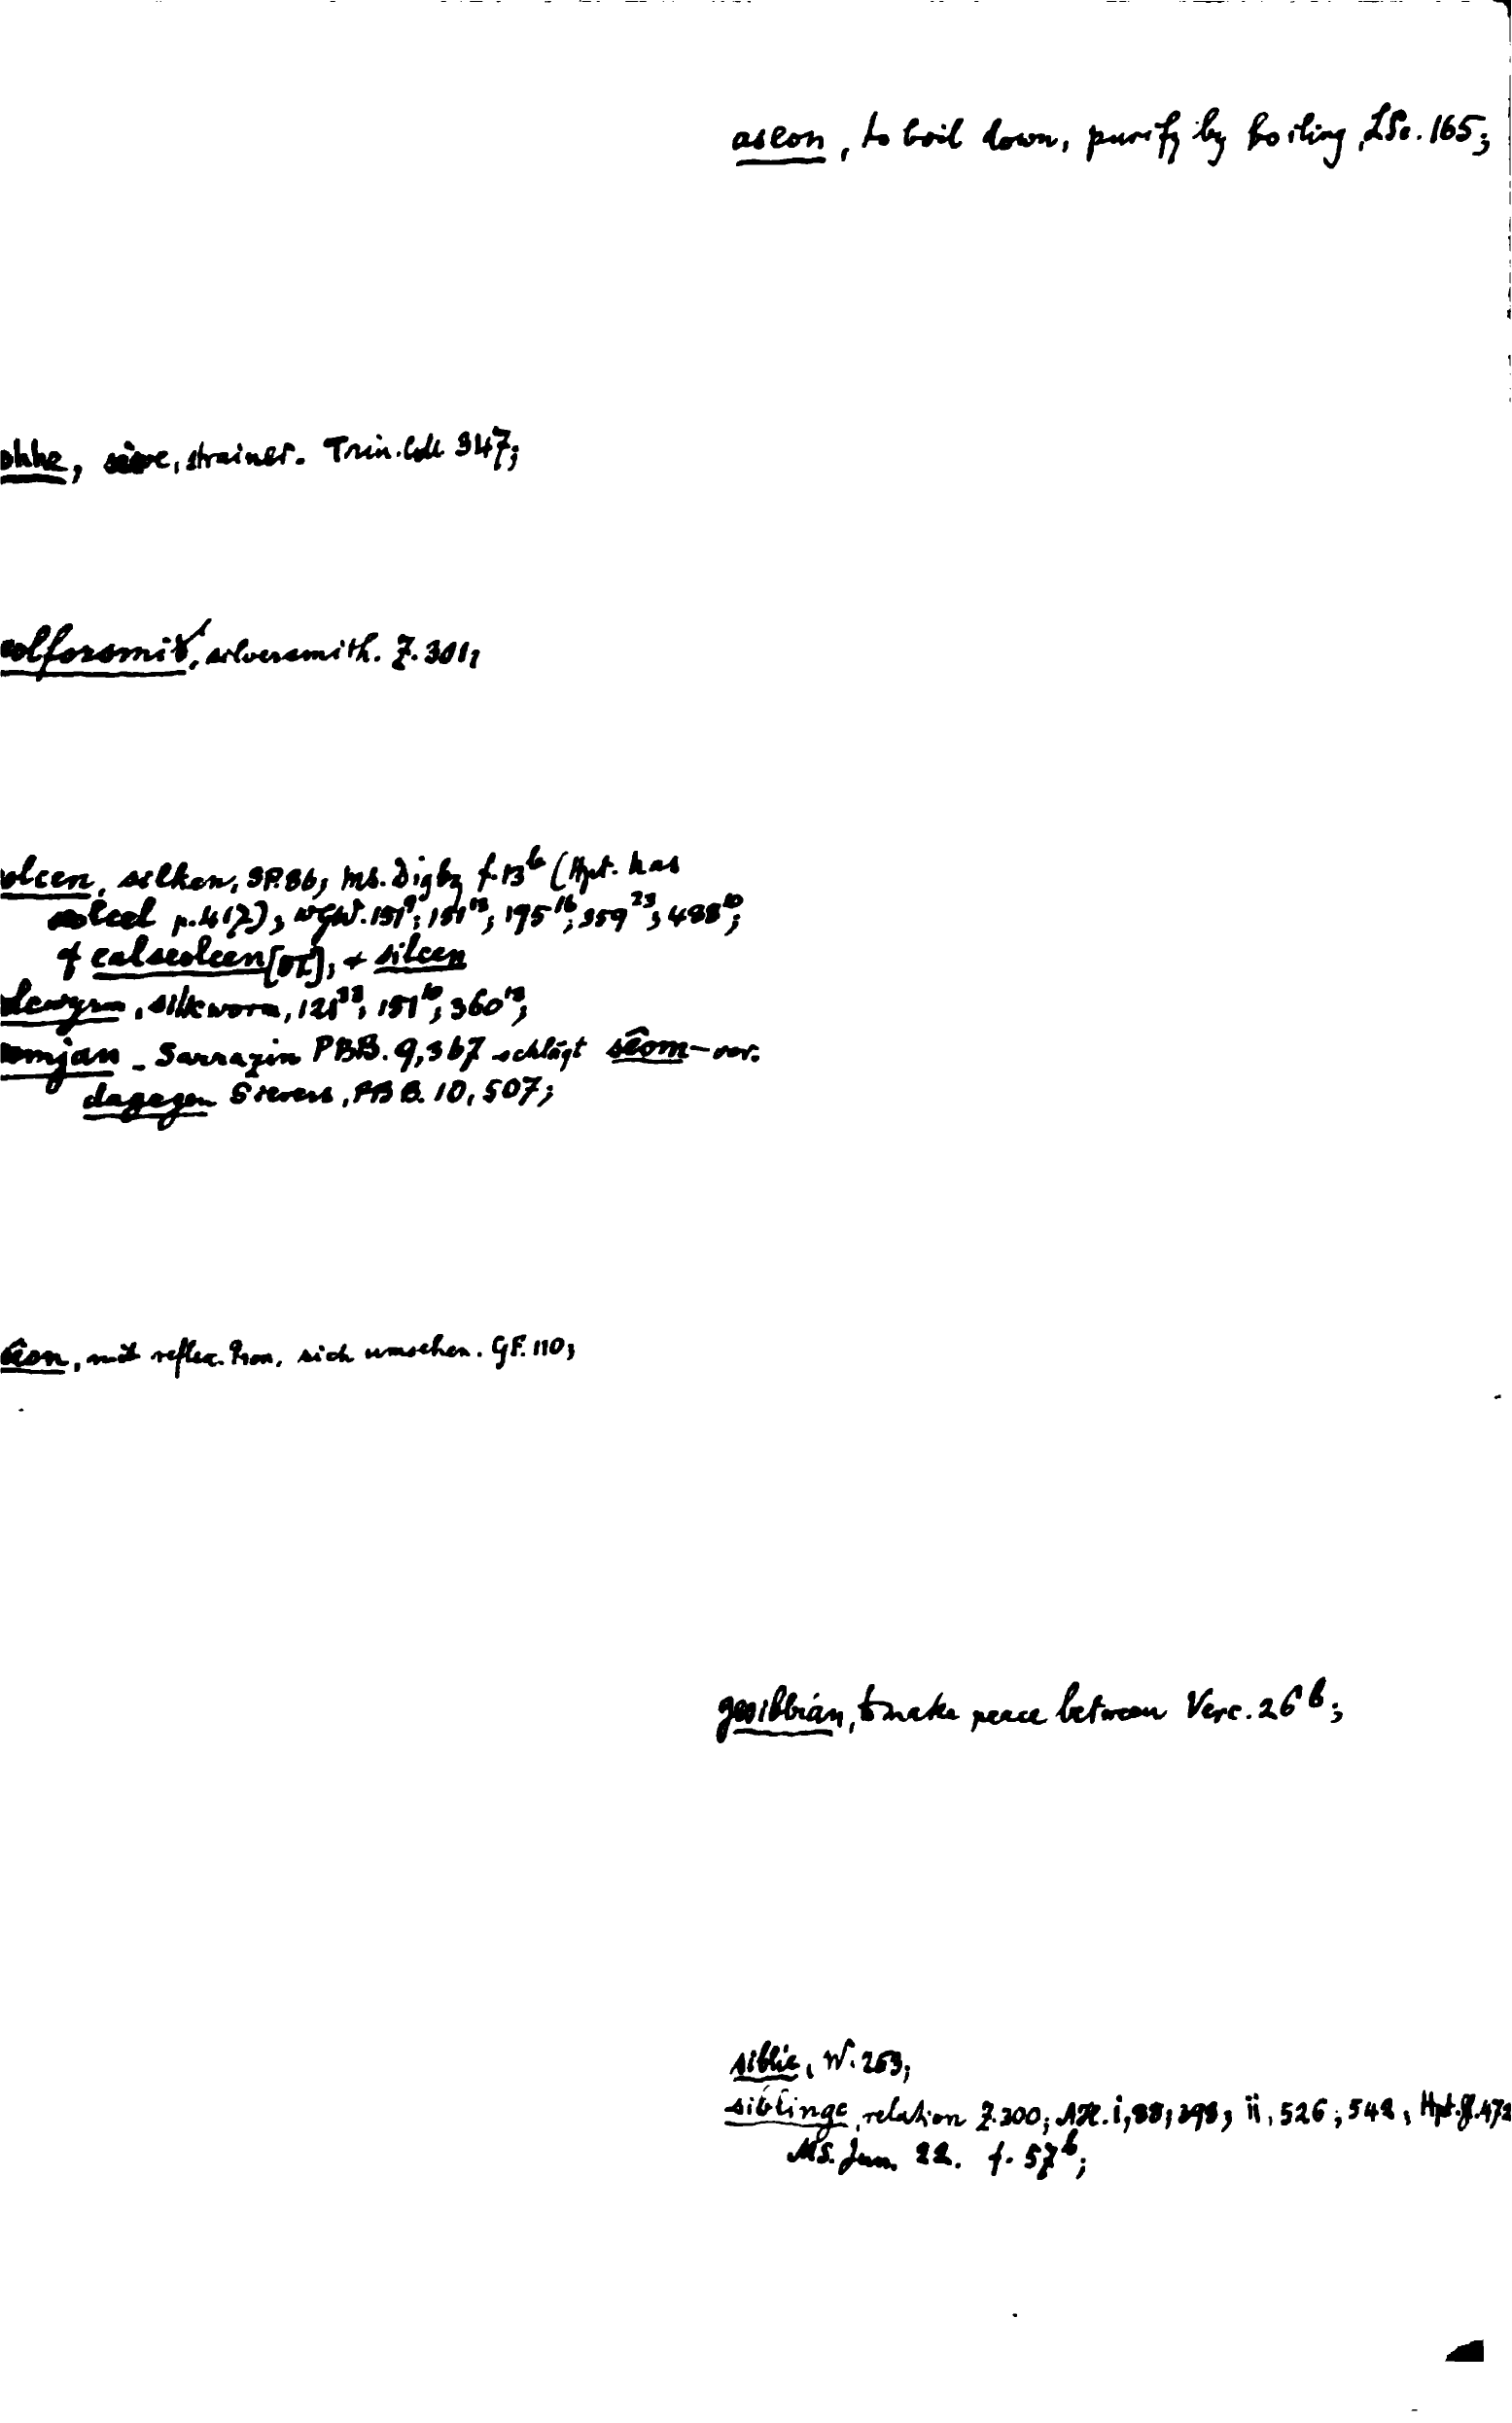 aseon, to boil down, purify by boiling, LSc. 165;
ohhe, sieve, strainer. Trin. Coll. 347;
eolforsmið, silversmith. Z. 301;
olcen, silken, SP. 86, Ms. Digby f. 13b (Hpt. has
seolcel p. 417), WGW. 151⁹; 151¹³; 195¹⁶; 359²³; 488¹⁰;
cf ealseolcen [BT], + silcen
lcwyrm, silkworm, 121³³; 151¹⁰; 360¹³;
omjan - Sarrazin PBB. 9, 367 schlägt sêom- vor.
dagegen Sievers, PBB. 10, 507;
êon, mit reflex. Pron. sich umsehen. GF. 110;
gesibbian, to make peace between Verc. 26b;
siblic, W. 253;
siblinge, relation Z. 300; ÆH. i, 88; 398; ii, 526; 542; Hpt. gl. 472
MS. Jun. 22. f. 57b;